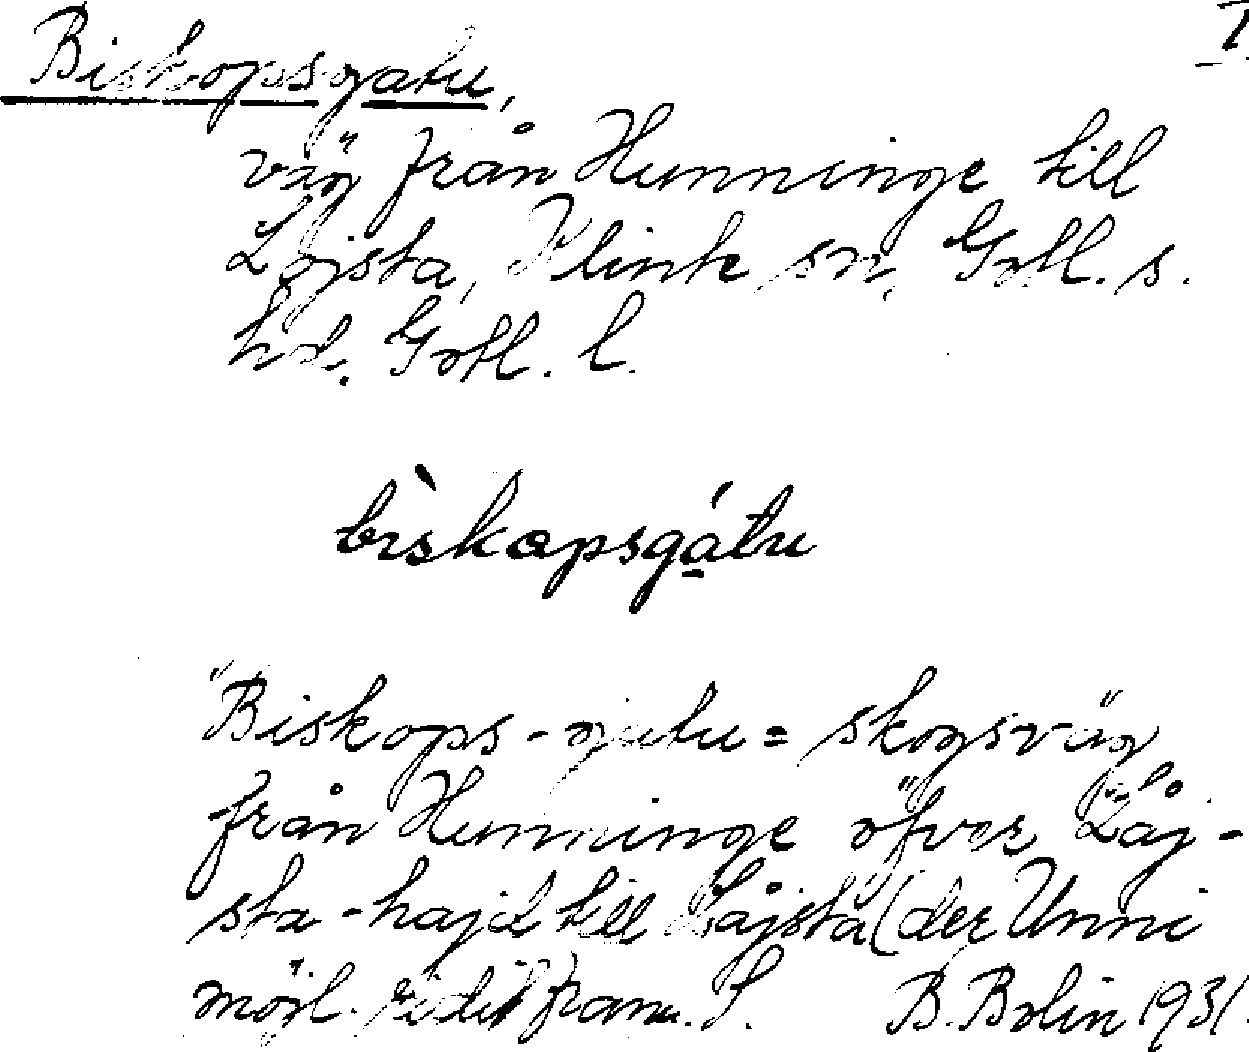 I
Biskopsgatu,
väg från Hunninge till
Lojsta, Klinte sn, Gotl. s.
hd. Gotl. l.
bìskapsgátu
"Biskops-gatu = skogsväg
från Hunninge öfver "Låj-
sta-hajd till Låjsta (der Unni
möjl. ridit fram. S. B. Bolin 1931.